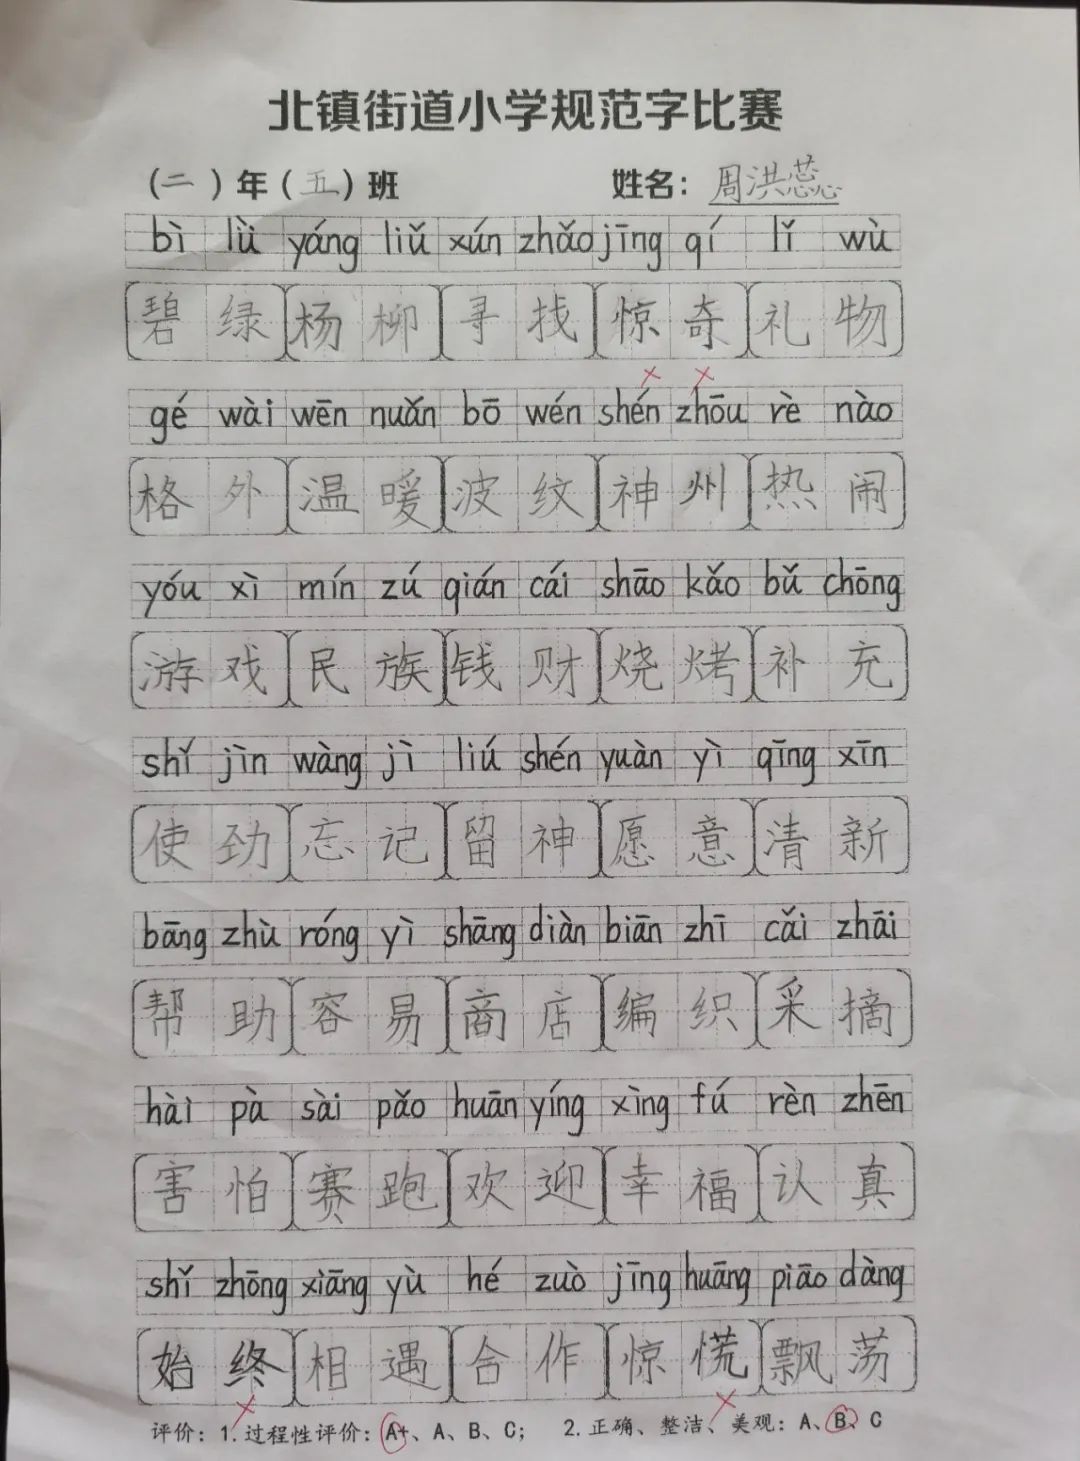 北镇街道小学规范字比赛
（二）年（五）班 姓名：周洪蕊
bì lǜ yáng liǔ xún zhǎo jīng qí lǐ wù
碧绿杨柳寻找惊奇礼物
gé wài wēn nuǎn bō wén shén zhōu rè nào
格外温暖波纹神州热闹
yóu xì mín zú qián cái shāo kǎo bǔ chōng
游戏民族钱财烧烤补充
shǐ jìn wàng jì liú shén yuàn yì qīng xīn
使劲忘记留神愿意清新
bāng zhù róng yì shāng diàn biān zhī cǎi zhāi
帮助容易商店编织采摘
hài pà sài pǎo huān yíng xìng fú rèn zhēn
害怕赛跑欢迎幸福认真
shǐ zhōng xiāng yù hé zuò jīng huāng piāo dàng
始终相遇合作惊慌飘荡
评价：1.过程性评价：A+、A、B、C； 2.正确、整洁、美观：A、B、C